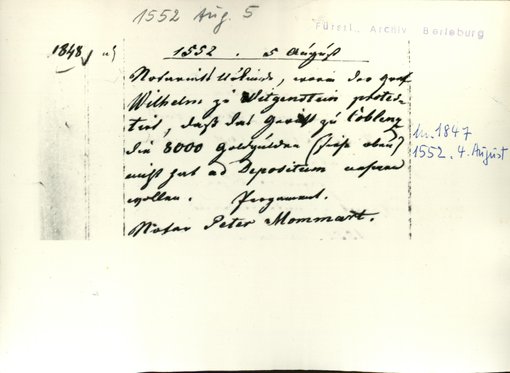 1552 Aug. 5
Fürstl. Archiv Berleburg
1848
1552. 5 August
Notariats Urkunde, worin der Graf
Wilhelm zu Witgenstein protes-
tirt, daß das Gericht zu Coblenz
die 8000 Goldgulden (siehe oben)
nicht hat ad Depositum nehmen
wollen. Pergament.
Notar Peter Mommart.
Nr. 1847
1552. 4. August